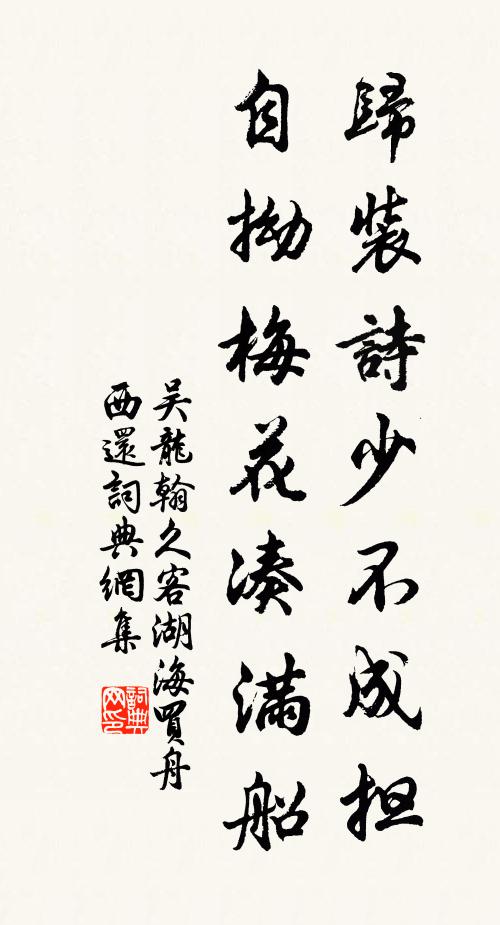 歸裝詩少不成担
自拗梅花湊滿船
吴龍翰久客湖海買舟
西還詞典網集
詞典
网印